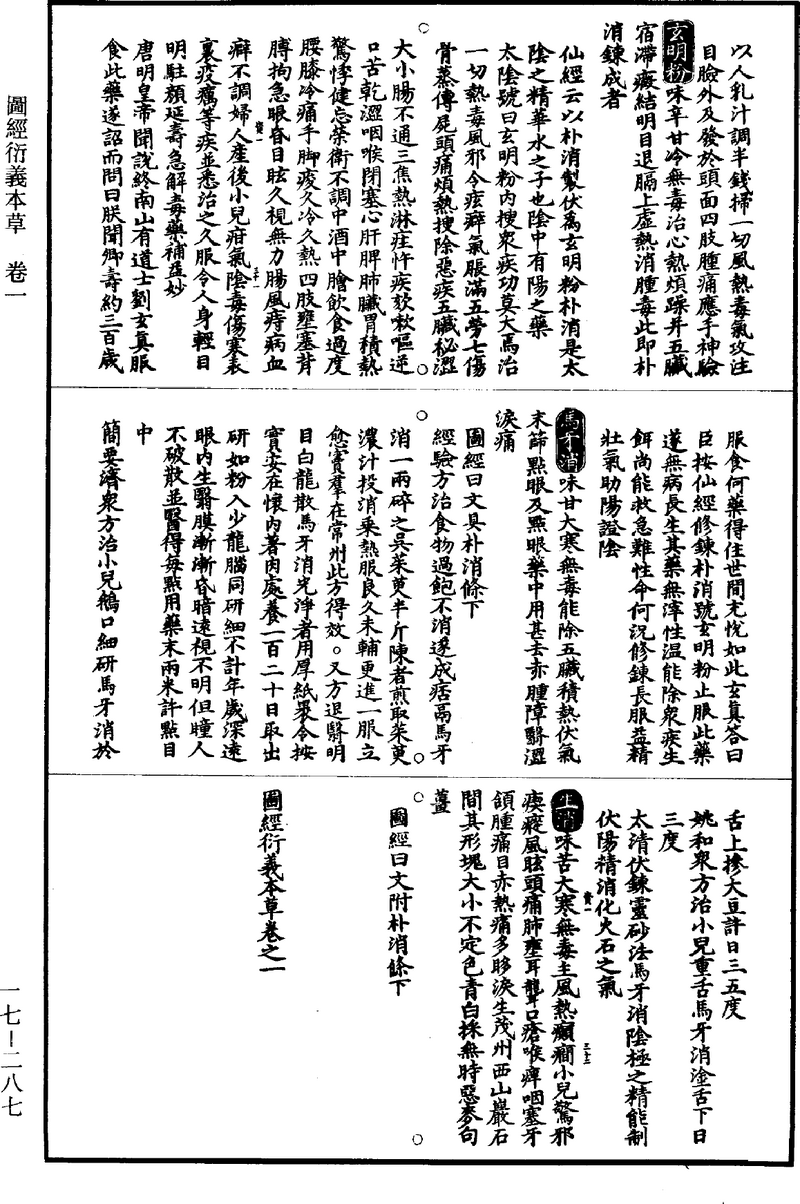 以人乳汁調半錢掃一切風熱毒氣攻注
目瞼外及發於頭面四肢腫痛應手神驗
玄明粉味辛甘冷無毒治心熱煩躁并五臟
宿滯癥結明目退膈上虛熱消腫毒此即朴
消鍊成者
仙經云以朴消製伏爲玄明粉朴消是太
陰之精華水之子也陰中有陽之藥
太陰號曰玄明粉内搜衆疾功莫大焉治
一切熱毒風邪令痃癖氣脹滿五勞七傷
骨蒸傳屍頭痛煩熱搜除惡疾五臟秘澀
大小腸不通三焦熱淋疰忤疾欬嗽嘔逆
口苦乾澀咽喉閉塞心肝脾肺臟胃積熱
驚悸健忘榮衛不調中酒中膾飲食過度
腰膝冷痛手脚痠久冷久熱四肢壅塞背
膊拘急眼昏目眩久視無力腸風痔病血
癖不調婦人産後小兒疳氣陰毒傷寒表
裏疫癘等疾並悉治之久服令人身輕目
明駐顏延壽急解毒藥補益妙
唐明皇帝聞説終南山有道士劉玄真服
食此藥遂詔而問曰朕聞卿壽約三百歲
服食何藥得住世間充悅如此玄真答曰
臣按仙經修鍊朴消號玄明粉止服此藥
遂無病長生其藥無滓性温能除衆疾生
餌尚能救急難性命何況修鍊長服益精
壯氣助陽證陰
馬牙消味甘大寒無毒能除五臟積熱伏氣
末篩點眼及點眼藥中用甚去赤腫障翳澀
淚痛
圖經曰文具朴消條下
經驗方治食物過飽不消遂成痞鬲馬牙
消一兩碎之吳茱萸半斤陳者煎取茱萸
濃汁投消乘熱服良久未轉更進一服立
愈竇羣在常州此方得效。又方退翳明
目白龍散馬牙消光淨者用厚紙裹令按
實安在懷内著肉處養一百二十日取出
研如粉入少龍腦同研細不計年歲深遠
眼内生翳膜漸漸昏暗遠視不明但瞳人
不破散並醫得每點用藥末兩米許點目
中
簡要濟衆方治小兒鵝口細研馬牙消於
舌上摻大豆許日三五度
姚和衆方治小兒重舌馬牙消塗舌下日
三度
太清伏鍊靈砂法馬牙消陰極之精能制
伏陽精消化火石之氣
生消味苦大寒無毒主風熱癲癇小兒驚邪
瘈瘲風眩頭痛肺壅耳聾口瘡喉痺咽塞牙
頷腫痛目赤熱痛多眵淚生茂州西山巖石
間其形塊大小不定色青白採無時惡麥句
薑
圖經曰文附朴消條下
圖經衍義本草卷之一
圖經衍義本草　卷一
一七—二八七